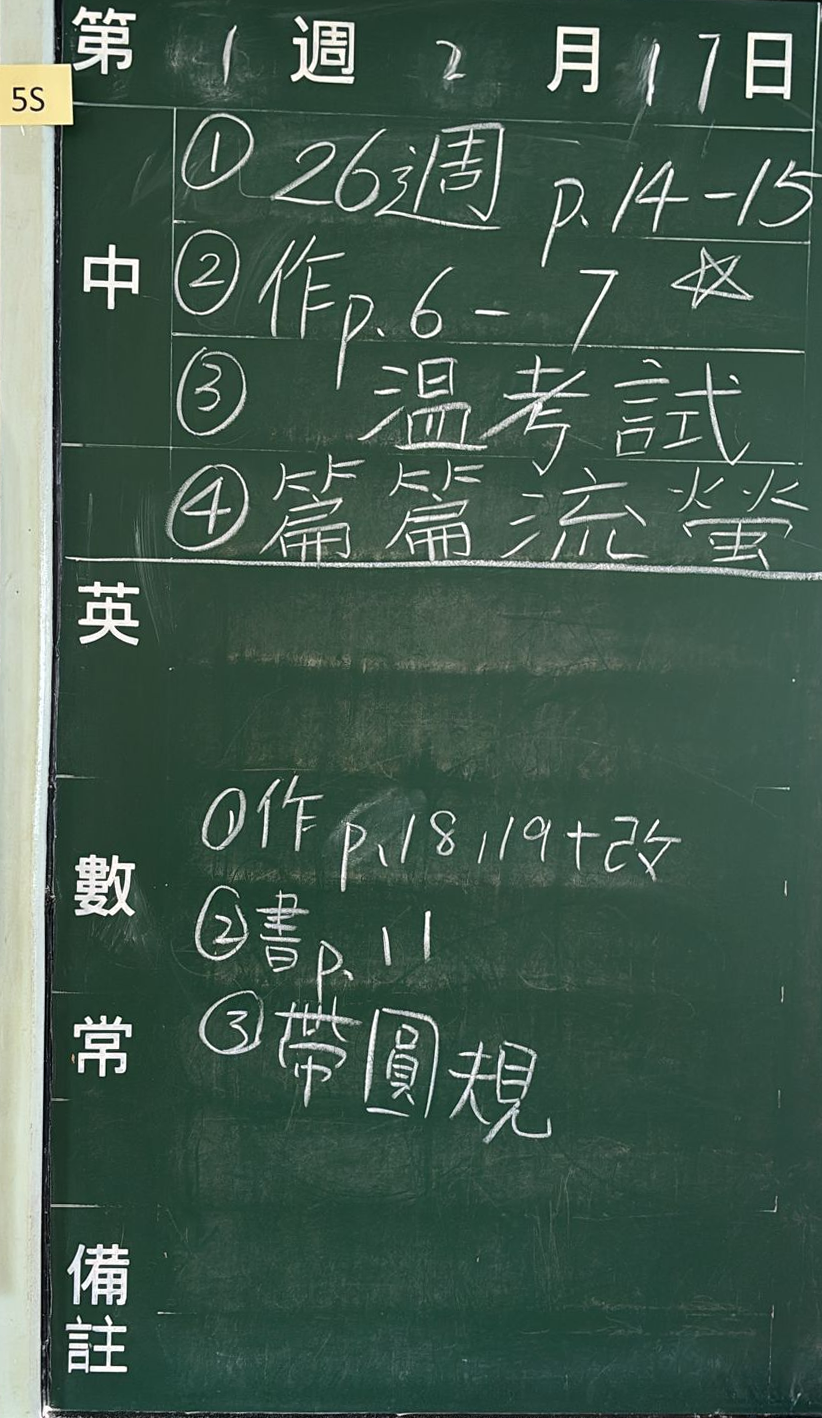 第 1 週 2 月 17 日
5S
中
① 26週 p.14-15
② 作 p.6 - 7 ☆
③ 温考試
④ 篇篇流螢
英
數
① 作 p.18,19+改
② 書 p.11
常
③ 帶圓規
備註